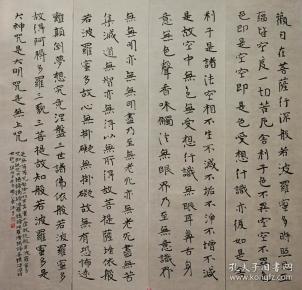 觀自在菩薩行深般若波羅蜜多時照
蘊皆空度一切苦厄舍利子色不異空空不異
色即是空空即是色受想行識亦復如是
利子是諸法空相不生不滅不垢不淨不增不減
是故空中無色無受想行識無眼耳鼻舌身
意無色聲香味觸法無眼界乃至無意識界
無無明亦無無明盡乃至無老死亦無老死盡無苦
集滅道無智亦無得以無所得故菩提薩埵依般
若波羅蜜多故心無掛礙無掛礙故無有恐怖遠
離顛倒夢想究竟涅盤三世諸佛依般若波羅蜜多
故得阿耨多羅三藐三菩提故知般若波羅蜜多是
大神咒是大明咒是無上咒